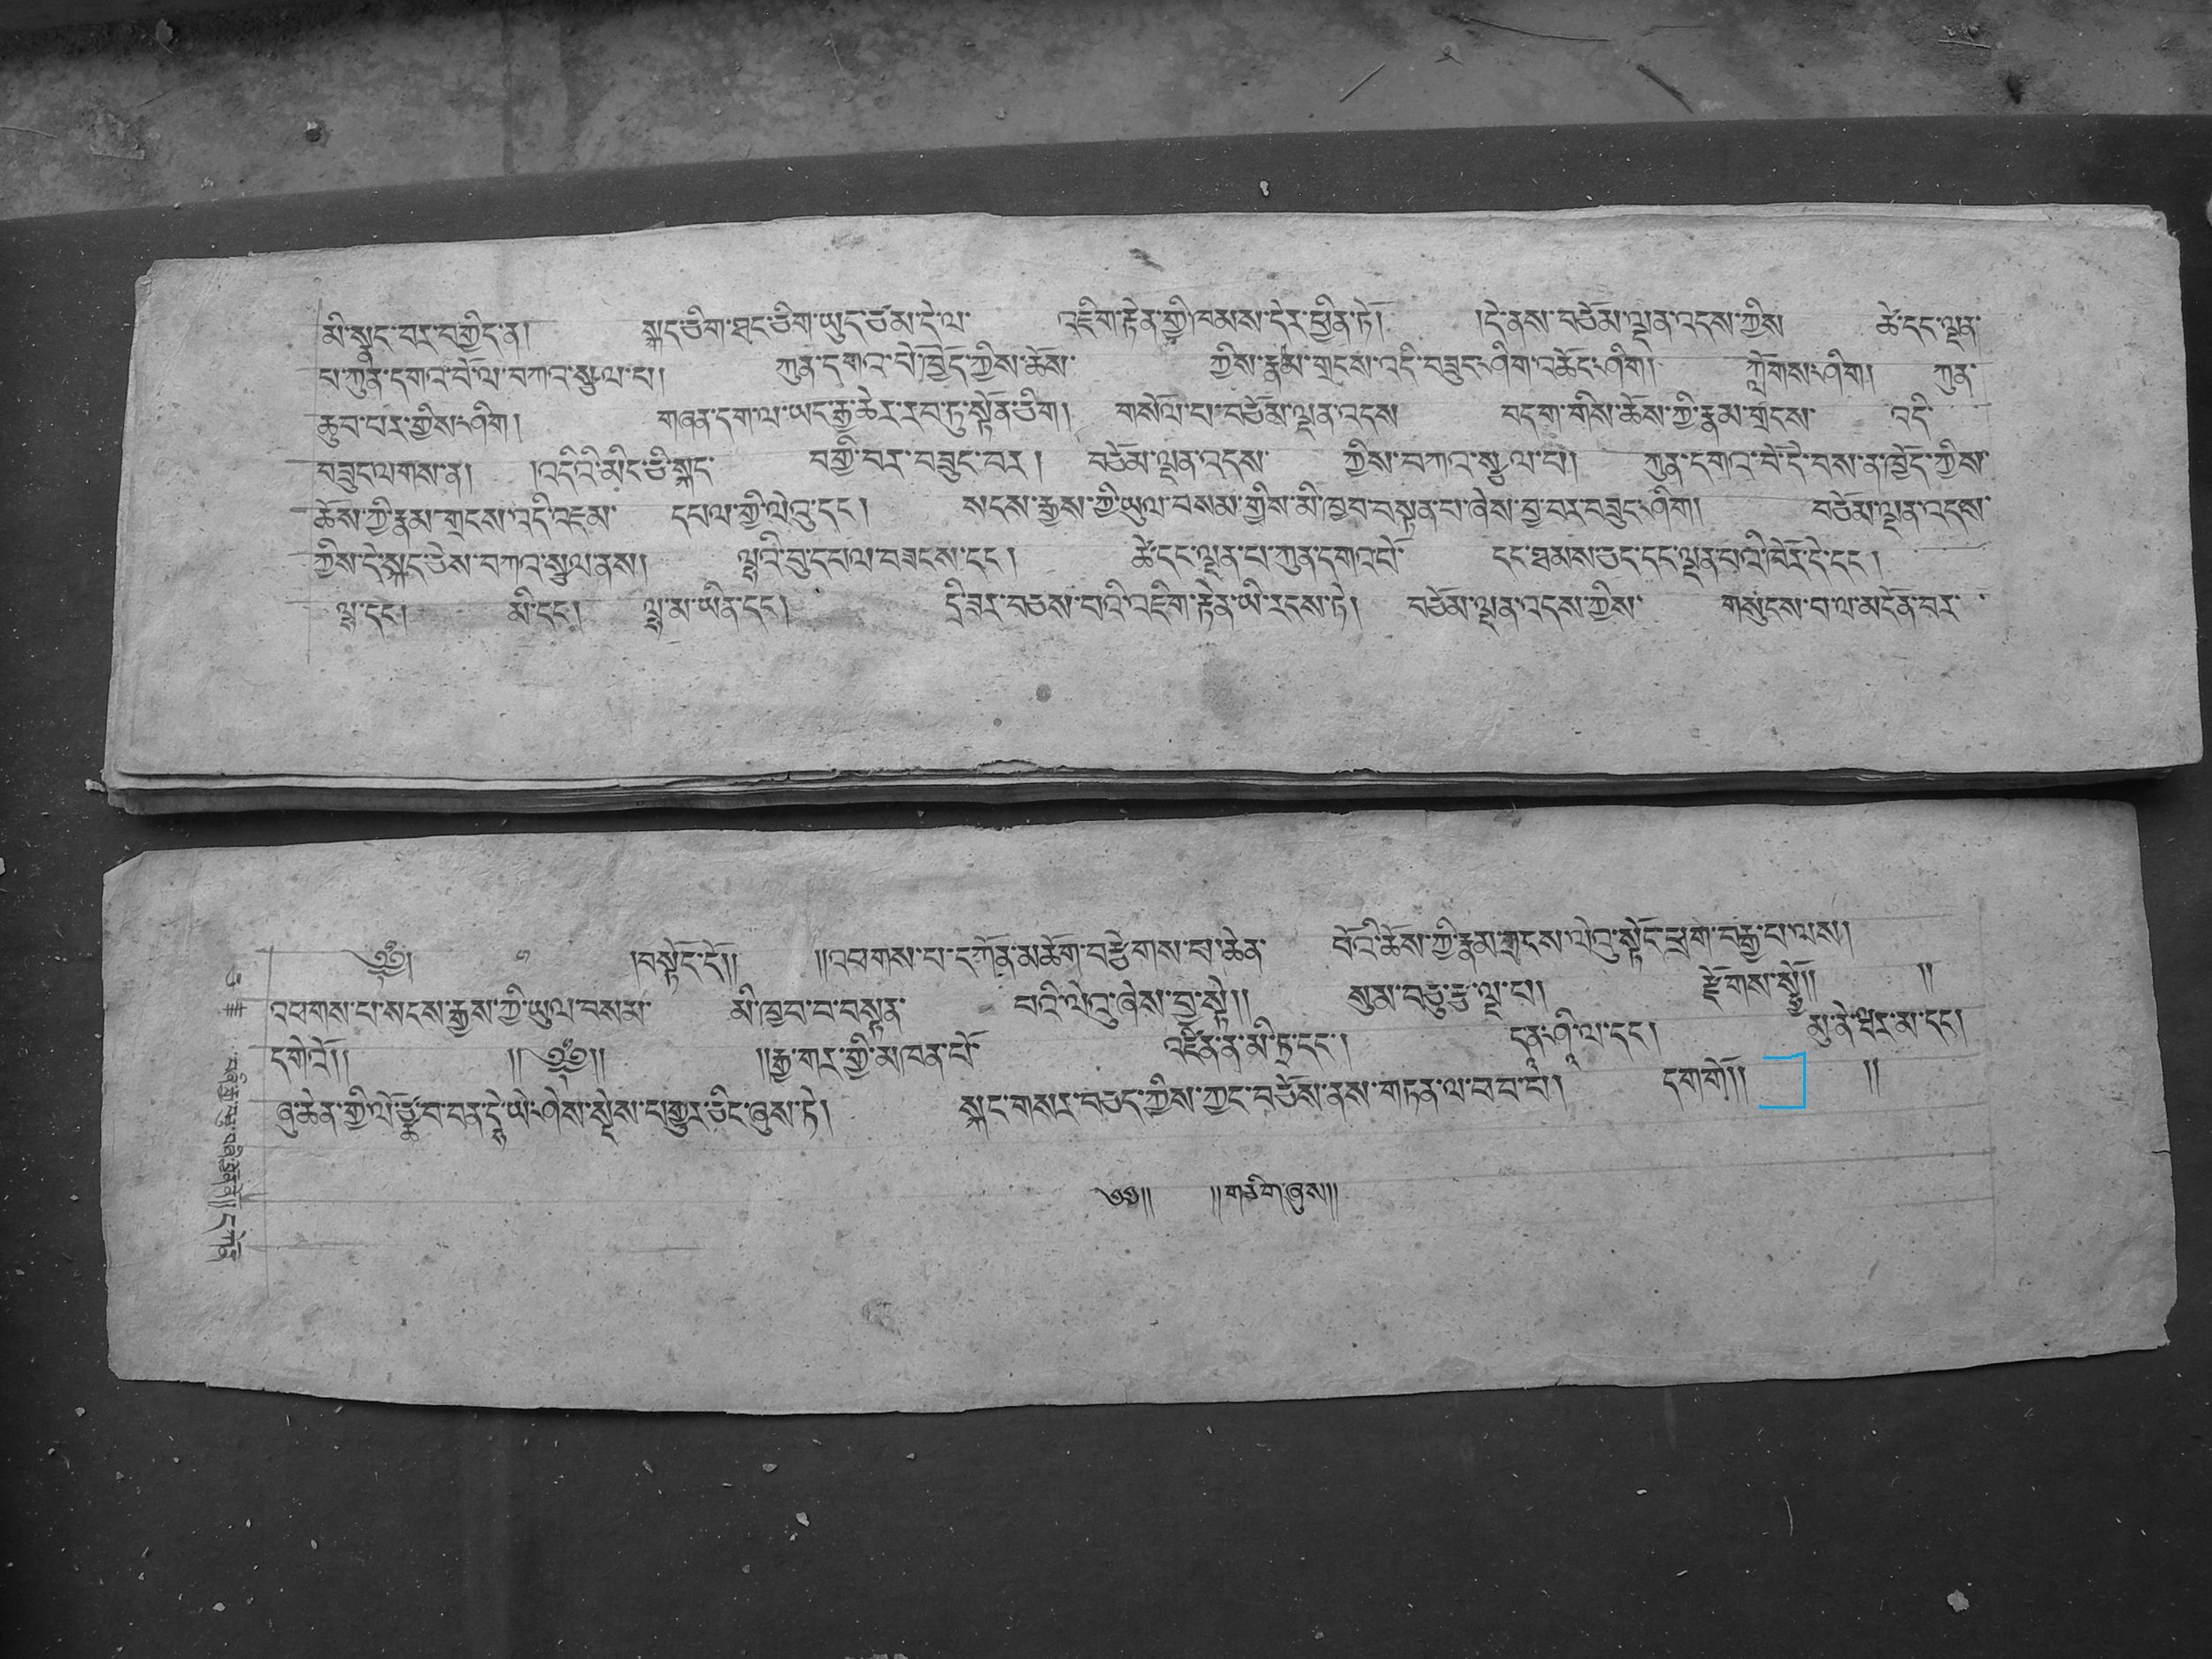 མི་སྣང་བར་བགྱིད་ན། སྐད་ཅིག་ཐང་ཅིག་ཡུད་ཙམ་དེ་ལ་ འཇིག་རྟེན་གྱི་ཁམས་དེར་ཕྱིན་ཏེ། །དེ་ནས་བཅོམ་ལྡན་འདས་ཀྱིས། ཚེ་དང་ལྡན་
པ་ཀུན་དགའ་བོ་ལ་བཀའ་སྩལ་པ། ཀུན་དགའ་བོ་ཁྱོད་ཀྱིས་ཆོས་ ཀྱིས་རྣམ་གྲངས་འདི་བཟུང་ཞིག་འཆོང་ཞིག། ཀློགས་ཤིག། ཀུན་
ཆུབ་པར་གྱིས་ཤིག། གཞན་དག་ལ་ཡང་རྒྱ་ཆེར་རབ་ཏུ་སྟོན་ཅིག། གསོལ་པ་བཅོམ་ལྡན་འདས། བདག་གིས་ཆོས་ཀྱི་རྣམ་གྲངས་ འདི་
བཟུང་ལགས་ན། །འདིའི་མིང་ཅི་སྐད་ བགྱི་བར་བཟུང་བར། བཅོམ་ལྡན་འདས་ ཀྱིས་བཀའ་སྩལ་པ། ཀུན་དགའ་བོ་དེ་བས་ན་ཁྱོད་ཀྱིས་
ཆོས་ཀྱི་རྣམ་གྲངས་འདི་འཇམ་ དཔལ་གྱི་ལེའུ་དང་། སངས་རྒྱས་ཀྱི་ཡུལ་བསམ་གྱིས་མི་ཁྱབ་བསྟན་པ་ཞེས་བྱ་བར་བཟུང་ཞིག། བཅོམ་ལྡན་འདས་
ཀྱིས་དེ་སྐད་ཅེས་བཀའ་སྩལ་ནས། ལྷའི་བུ་དཔལ་བཟངས་དང་། ཚེ་དང་ལྡན་པ་ཀུན་དགའ་བོ་ དང་ཐམས་ཅད་དང་ལྡན་པའི་ཁོར་དེ་དང་།
ལྷ་དང་། མི་དང་། ལྷ་མ་ཡིན་དང་། དྲི་ཟར་བཅས་པའི་འཇིག་རྟེན་ཡི་རངས་ཏེ། བཅོམ་ལྡན་འདས་ཀྱིས་ གསུངས་བ་ལ་མངོན་བར་
༄༅། །བསྟོད་དོ།། །།འཕགས་པ་དཀོན་མཆོག་བརྩེགས་པ་ཆེན་ པོའི་ཆོས་ཀྱི་རྣམ་གྲངས་ལེའུ་སྟོང་ཕྲག་བརྒྱ་པ་ལས།།
འཕགས་པ་སངས་རྒྱས་ཀྱི་ཡུལ་བསམ་ མི་ཁྱབ་བ་བསྟན་ པའི་ལེའུ་ཞེས་བྱ་སྟེ།། སུམ་བཅུ་རྩ་ལྔ་པ། རྫོགས་སྷོ།། །།
དགེའོ།། །།༄༅།། །།རྒྱ་གར་གྱི་མཁན་པོ་ འཛིན་ན་མི་ཏྲ་དང་། དན་ཤི་ལ་དང་། མུ་ནེ་ཝར་མ་དང།
ཞུ་ཆེན་གྱི་ལོ་ཙྪ་བ་བན་དྷེ་ཡེ་ཤེས་སྡེས་པ་གྱུར་ཅིང་ཞུས་ཏེ། སྐད་གསར་བཅད་ཀྱིས་ཀྱང་བཅོས་ནས་གཏན་ལ་ཕབ་པ། དགགོ།། །།
༄༅།། །།གཅིག་ཞུས།།